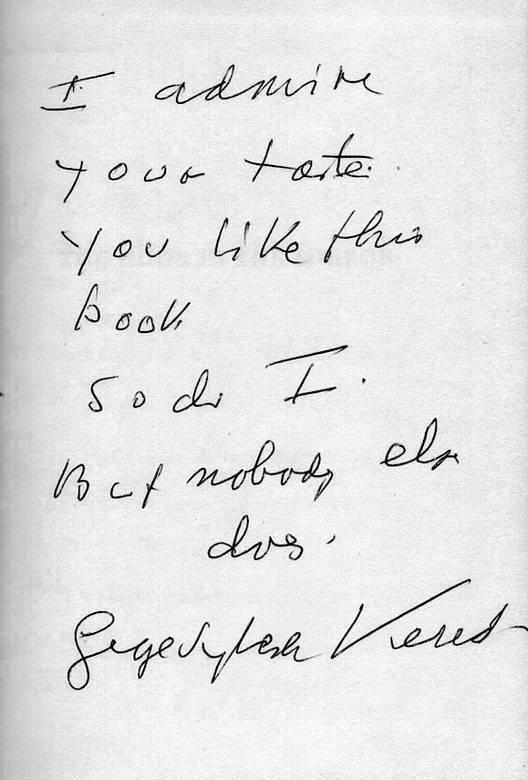 I admire
your taste.
You like this
book
So do I.
But nobody else
does.